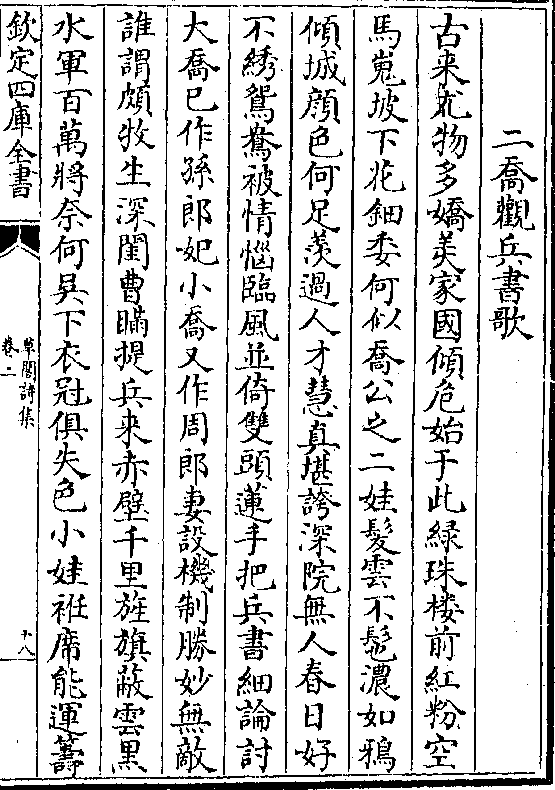 二喬觀兵書歌
古来尤物多嬌美家國傾危始于此緑珠楼前紅粉空
馬嵬坡下花鈿委何似喬公之二娃髮雲不髢濃如鴉
傾城顔色何足羡過人才慧真堪誇深院無人春日好
不綉鴛鴦被情惱臨風並倚雙頭蓮手把兵書細論討
大喬已作孫郎妃小喬又作周郎妻設機制勝妙無敵
誰謂頗牧生深閨曹瞞提兵来赤壁千里旌旗蔽雲黒
水軍百萬將奈何吳下衣冠俱失色小娃袵席能運籌
欽定四庫全書
草閣詩集
卷二
十八